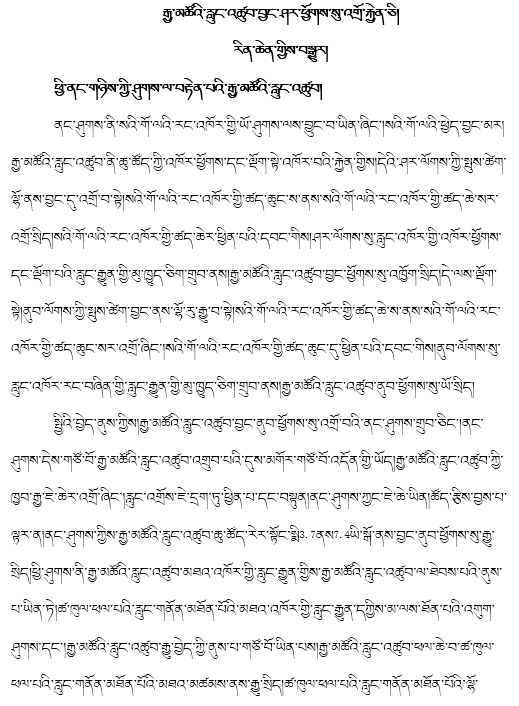 རྒྱ་མཚོའི་རླུང་འཚུབ་བྱང་ཤར་ཕྱོགས་སུ་འགྲོ་རྐྱེན་ཅི།
རིན་ཆེན་གྱིས་བསྒྱུར།
ཕྱི་ནང་གཉིས་ཀྱི་ཤུགས་ལ་བརྟེན་པའི་རྒྱ་མཚོའི་རླུང་འཚུབ།
ནང་ཤུགས་ནི་སའི་གོ་ལའི་རང་འཁོར་གྱི་ཡོ་ཤུགས་ལས་བྱུང་བ་ཡིན་ཞིང་།སའི་གོ་ལའི་ཕྱེད་བྱང་མར།
རྒྱ་མཚོའི་རླུང་འཚུབ་ནི་ཆུ་ཚོད་ཀྱི་འཁོར་ཕྱོགས་དང་ལྡོག་སྟེ་འཁོར་བའི་རྐྱེན་གྱིས།དེའི་ཤར་ལོགས་ཀྱི་སྤུས་ཚེག་
ལྷོ་ནས་བྱང་དུ་འགྲོ་བ་སྟེ།སའི་གོ་ལའི་རང་འཁོར་གྱི་ཚད་ཆུང་ས་ནས་སའི་གོ་ལའི་རང་འཁོར་གྱི་ཚད་ཆེ་སར་
འགྲོ་སྲིད།སའི་གོ་ལའི་རང་འཁོར་གྱི་ཚད་ཆེར་ཕྱིན་པའི་དབང་གིས།ཤར་ལོགས་སུ་རླུང་འཁོར་གྱི་འཁོར་ཕྱོགས་
དང་ལྡོག་པའི་རླུང་རྒྱུན་གྱི་མུ་ཁྱུད་ཅིག་གྲུབ་ནས།རྒྱ་མཚོའི་རླུང་འཚུབ་བྱང་ཕྱོགས་སུ་འཁྱོག་སྲིད།དེ་ལས་ལྡོག་
སྟེ།ནུབ་ལོགས་ཀྱི་སྤུས་ཚེག་བྱང་ནས་ལྷོ་རུ་རྒྱུ་བ་སྟེ།སའི་གོ་ལའི་རང་འཁོར་གྱི་ཚད་ཆེ་ས་ནས་སའི་གོ་ལའི་རང་
འཁོར་གྱི་ཚད་ཆུང་སར་འགྲོ་ཞིང་།སའི་གོ་ལའི་རང་འཁོར་གྱི་ཚད་ཆུང་དུ་ཕྱིན་པའི་དབང་གིས།ནུབ་ལོགས་སུ་
རླུང་འཁོར་རང་བཞིན་གྱི་རླུང་རྒྱུན་གྱི་མུ་ཁྱུད་ཅིག་གྲུབ་ནས།རྒྱ་མཚོའི་རླུང་འཚུབ་ནུབ་ཕྱོགས་སུ་ཡོ་སྲིད།
སྤྱིའི་བྱེད་ནུས་ཀྱིས།རྒྱ་མཚོའི་རླུང་འཚུབ་བྱང་ནུབ་ཕྱོགས་སུ་འགྲོ་བའི་ནང་ཤུགས་གྲུབ་ཅིང་།ནང་
ཤུགས་དེས་གཙོ་བོ་རྒྱ་མཚོའི་རླུང་འཚུབ་འགྲུབ་པའི་དུས་མགོར་གཙོ་བོ་འདོན་གྱི་ཡོད།རྒྱ་མཚོའི་རླུང་འཚུབ་ཀྱི་
ཁྱབ་རྒྱ་ཇེ་ཆེར་འགྲོ་ཞིང་།རླུང་འགྲོས་ཇེ་དྲག་ཏུ་ཕྱིན་པ་དང་བསྟུན།ནང་ཤུགས་ཀྱང་ཇེ་ཆེ་ཡིན།ཚོད་རྩིས་བྱས་པ་
ལྟར་ན།ནང་ཤུགས་ཀྱིས་རྒྱ་མཚོའི་རླུང་འཚུབ་ཆུ་ཚོད་རེར་སྟོང་སྨི3.7ནས7.4ཡི་སྒོ་ནས་བྱང་ནུབ་ཕྱོགས་སུ་རྒྱུ་
སྲིད།ཕྱི་ཤུགས་ནི་རྒྱ་མཚོའི་རླུང་འཚུབ་མཐའ་འཁོར་གྱི་རླུང་རྒྱུན་གྱིས་རྒྱ་མཚོའི་རླུང་འཚུབ་ལ་ཐེབས་པའི་ནུས་
པ་ཡིན་ཏེ།ཚ་ཁུལ་ཕལ་པའི་རླུང་གནོན་མཐོན་པོའི་མཐའ་འཁོར་གྱི་རླུང་རྒྱུན་དཀྱིས་མ་ལས་ཐོན་པའི་འགུག་
ཤུགས་དང་།རྒྱ་མཚོའི་རླུང་འཚུབ་རྒྱུ་བྱེད་ཀྱི་ནུས་པ་གཙོ་བོ་ཡིན་པས།རྒྱ་མཚོའི་རླུང་འཚུབ་ཕལ་ཆེ་བ་ཚ་ཁུལ་
ཕལ་པའི་རླུང་གནོན་མཐོན་པོའི་མཐའ་མཚམས་ནས་རྒྱུ་སྲིད།ཚ་ཁུལ་ཕལ་པའི་རླུང་གནོན་མཐོན་པོའི་ལྷོ་